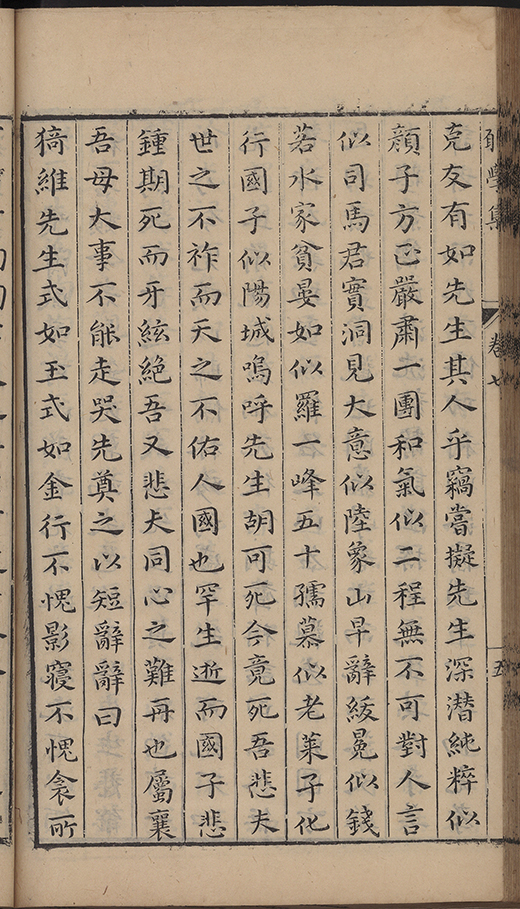 學集
卷七
五
克友有如先生其人乎竊嘗擬先生深潛純粹似
顏子方正嚴肅一團和氣似二程無不可對人言
似司馬君實洞見大意似陸象山早辭綬冕似錢
若水家貧晏如似羅一峰五十孺慕似老萊子化
行國子似陽城嗚呼先生胡可死今竟死吾悲夫
世之不祚而天之不佑人國也罕生逝而國子悲
鍾期死而牙絃絕吾又悲夫同心之難再也屬襄
吾母大事不能走哭先奠之以短辭辭曰
猗維先生式如玉式如金行不愧影寢不愧衾所